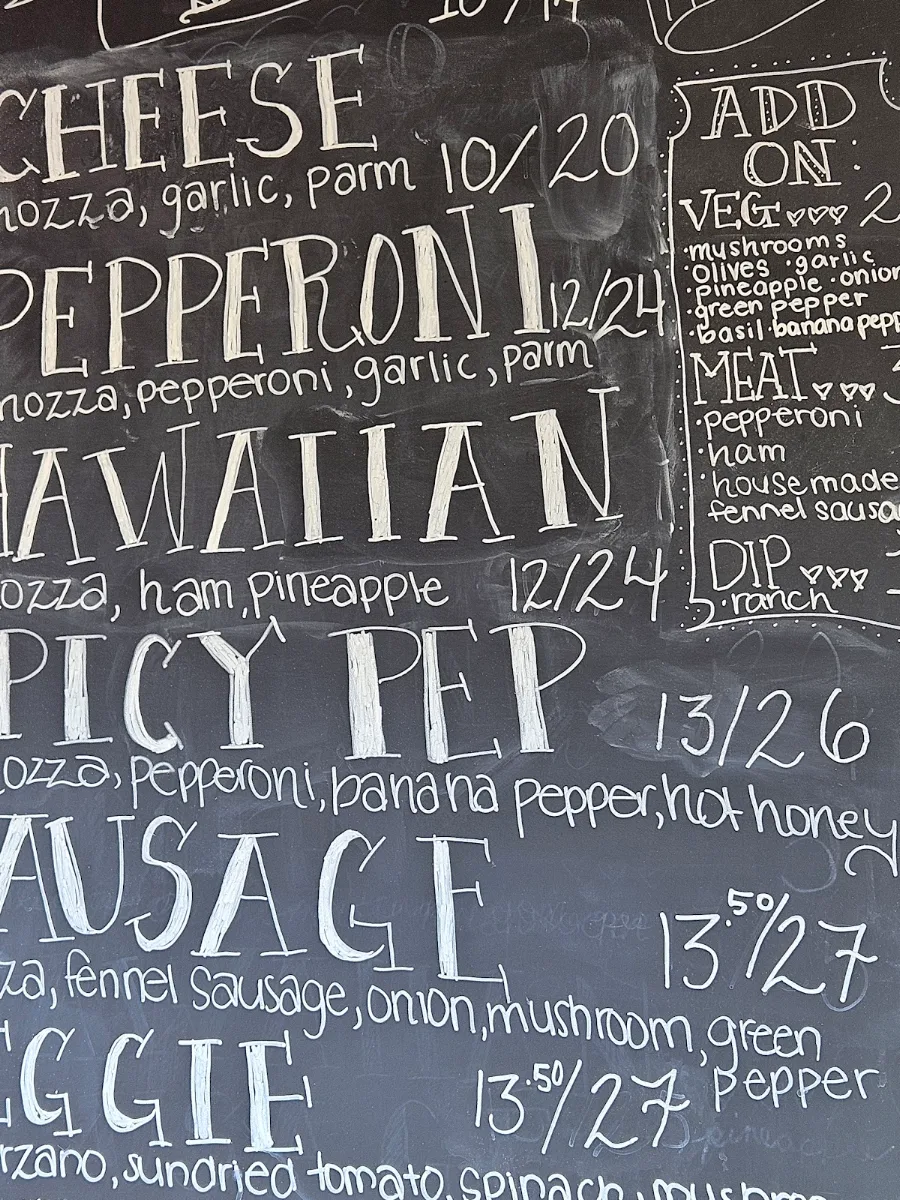 10/14
CHEESE
mozza, garlic, parm 10/20
PEPPERONI 12/24
mozza, pepperoni, garlic, parm
HAWAIIAN
ozza, ham, pineapple 12/24
PICY PEP 13/26
ozza, pepperoni, banana pepper, hot honey
AUSAGE 13.50/27
za, fennel sausage, onion, mushroom, green
pepper
EGGIE 13.50/27
rzano, sundried tomato, spinach, mushro
ADD
ON:
VEG 2
·mushrooms
·olives ·garlic
·pineapple ·onion
·green pepper
·basil ·banana pepp
MEAT 3
·pepperoni
·ham
·housemade
fennel sausa
DIP
·ranch